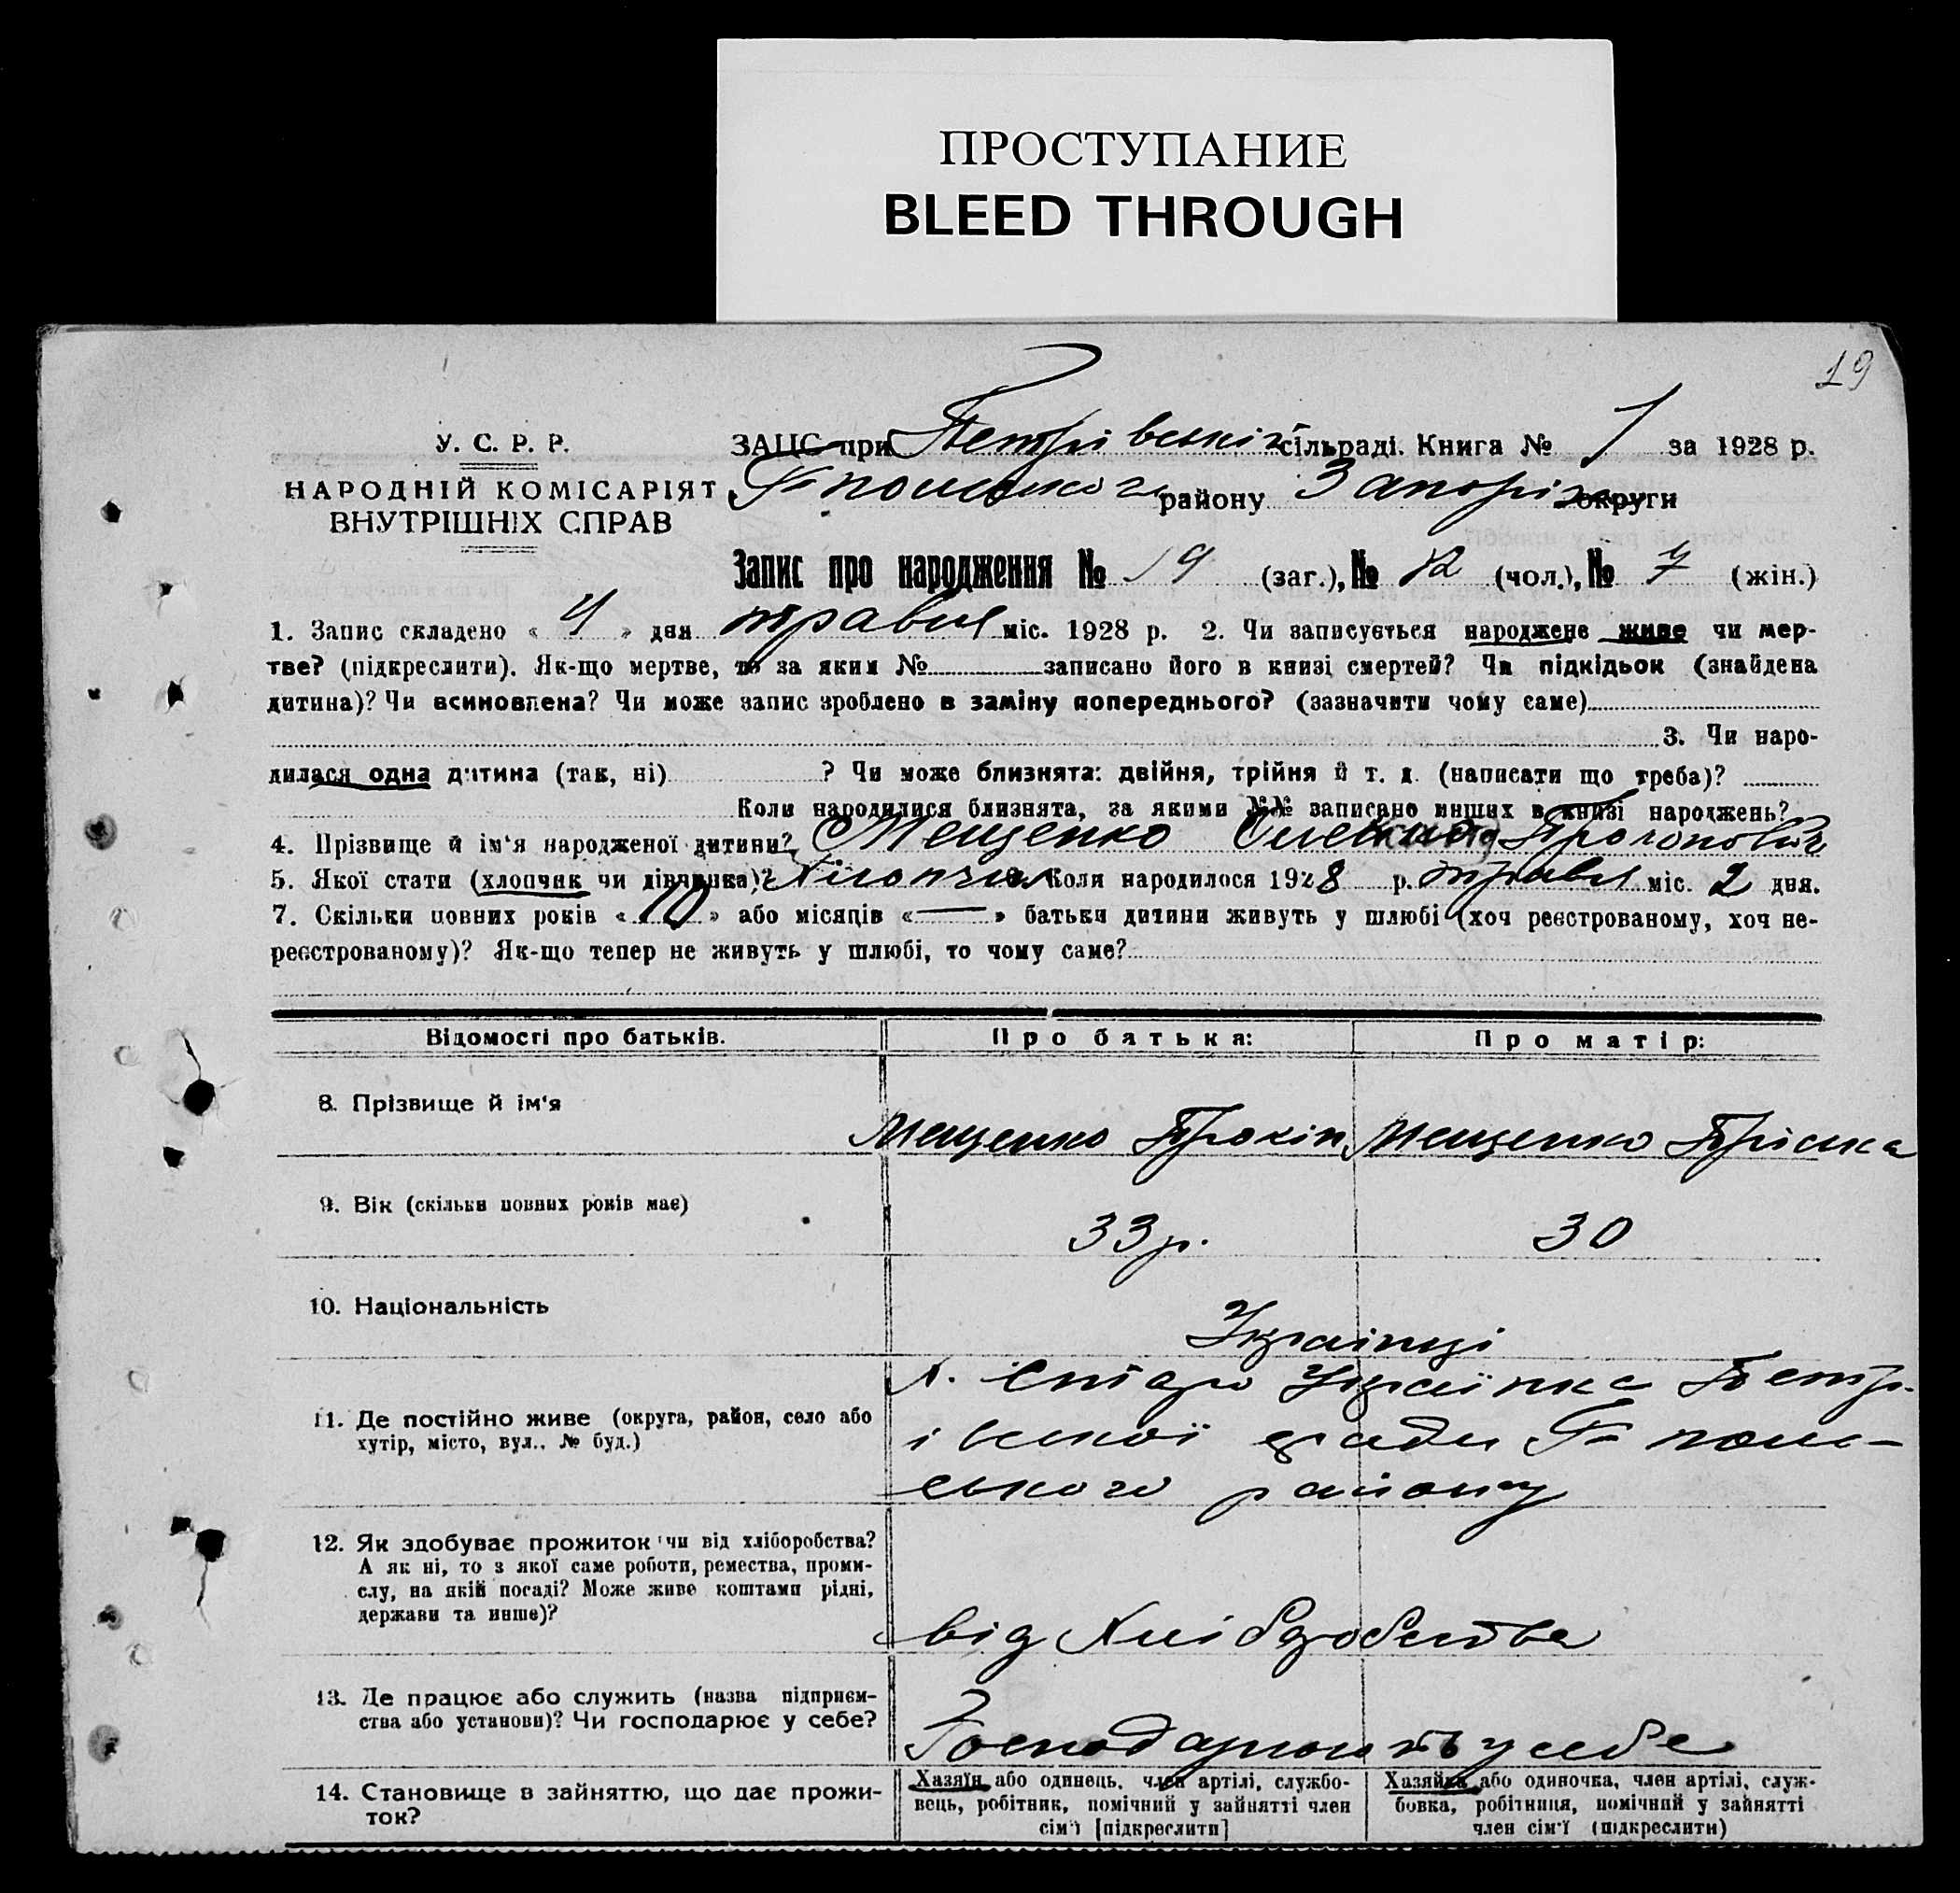 ПРОСТУПАНИЕ
BLEED THROUGH
19
У. С. Р. Р.
НАРОДНІЙ КОМІСАРІЯТ
ВНУТРІШНІХ СПРАВ
ЗАЦС при Петрівській сільраді. Книга № 1 за 1928 р.
району Запоріж округи
Запис про народження № 19 (заг.), № 12 (чол.), № 7 (жін.)
1. Запис складено « 4 » дня травня міс. 1928 р. 2. Чи записується народжене живе чи мер-
тве? (підкреслити). Як-що мертве, то за яким № записано його в книзі смертей? Чи підкідьок (знайдена
дитина)? Чи всиновлена? Чи може запис зроблено в заміну попереднього? (зазначити чому саме)
3. Чи наро-
дилася одна дитина (так, ні) ? Чи може близнята: двійня, трійня й т. д. (написати що треба)?
Коли народилися близнята, за якими №№ записано инших в книзі народжень?
4. Прізвище й ім'я народженої дитини? Мещенко Прокопович
5. Якої стати (хлопчик чи дівчинка)? Хлопчик Коли народилося 1928 р. травня міс. 2 дня.
7. Скільки повних років « 10 » або місяців « — » батьки дитини живуть у шлюбі (хоч реєстрованому, хоч не-
реєстрованому)? Як-що тепер не живуть у шлюбі, то чому саме?
Відомості про батьків. Про батька: Про матір:
8. Прізвище й ім'я Мещенко Прокіп Мещенко Пріська
9. Вік (скільки повних років має) 33 р. 30
10. Національність Українці
11. Де постійно живе (округа, район, село або
хутір, місто, вул.. № буд.)
Україна Петр-
івської ради
ського району
12. Як здобуває прожиток чи від хліборобства?
А як ні, то з якої саме роботи, ремества, проми-
слу, на якій посаді? Може живе коштами рідні,
держави та инше)?
від Хліборобства
13. Де працює або служить (назва підприєм-
ства або установи)? Чи господарює у себе?
Господарюють у себе
14. Становище в зайняттю, що дає прожи-
ток?
Хазяїн або одинець, член артілі, службо-
вець, робітник, помічний у зайнятті член
сім'ї [підкреслити]
Хазяйка або одиночка, член артілі, служ-
бовка, робітниця, помічний у зайнятті
член сім'ї (підкреслити)